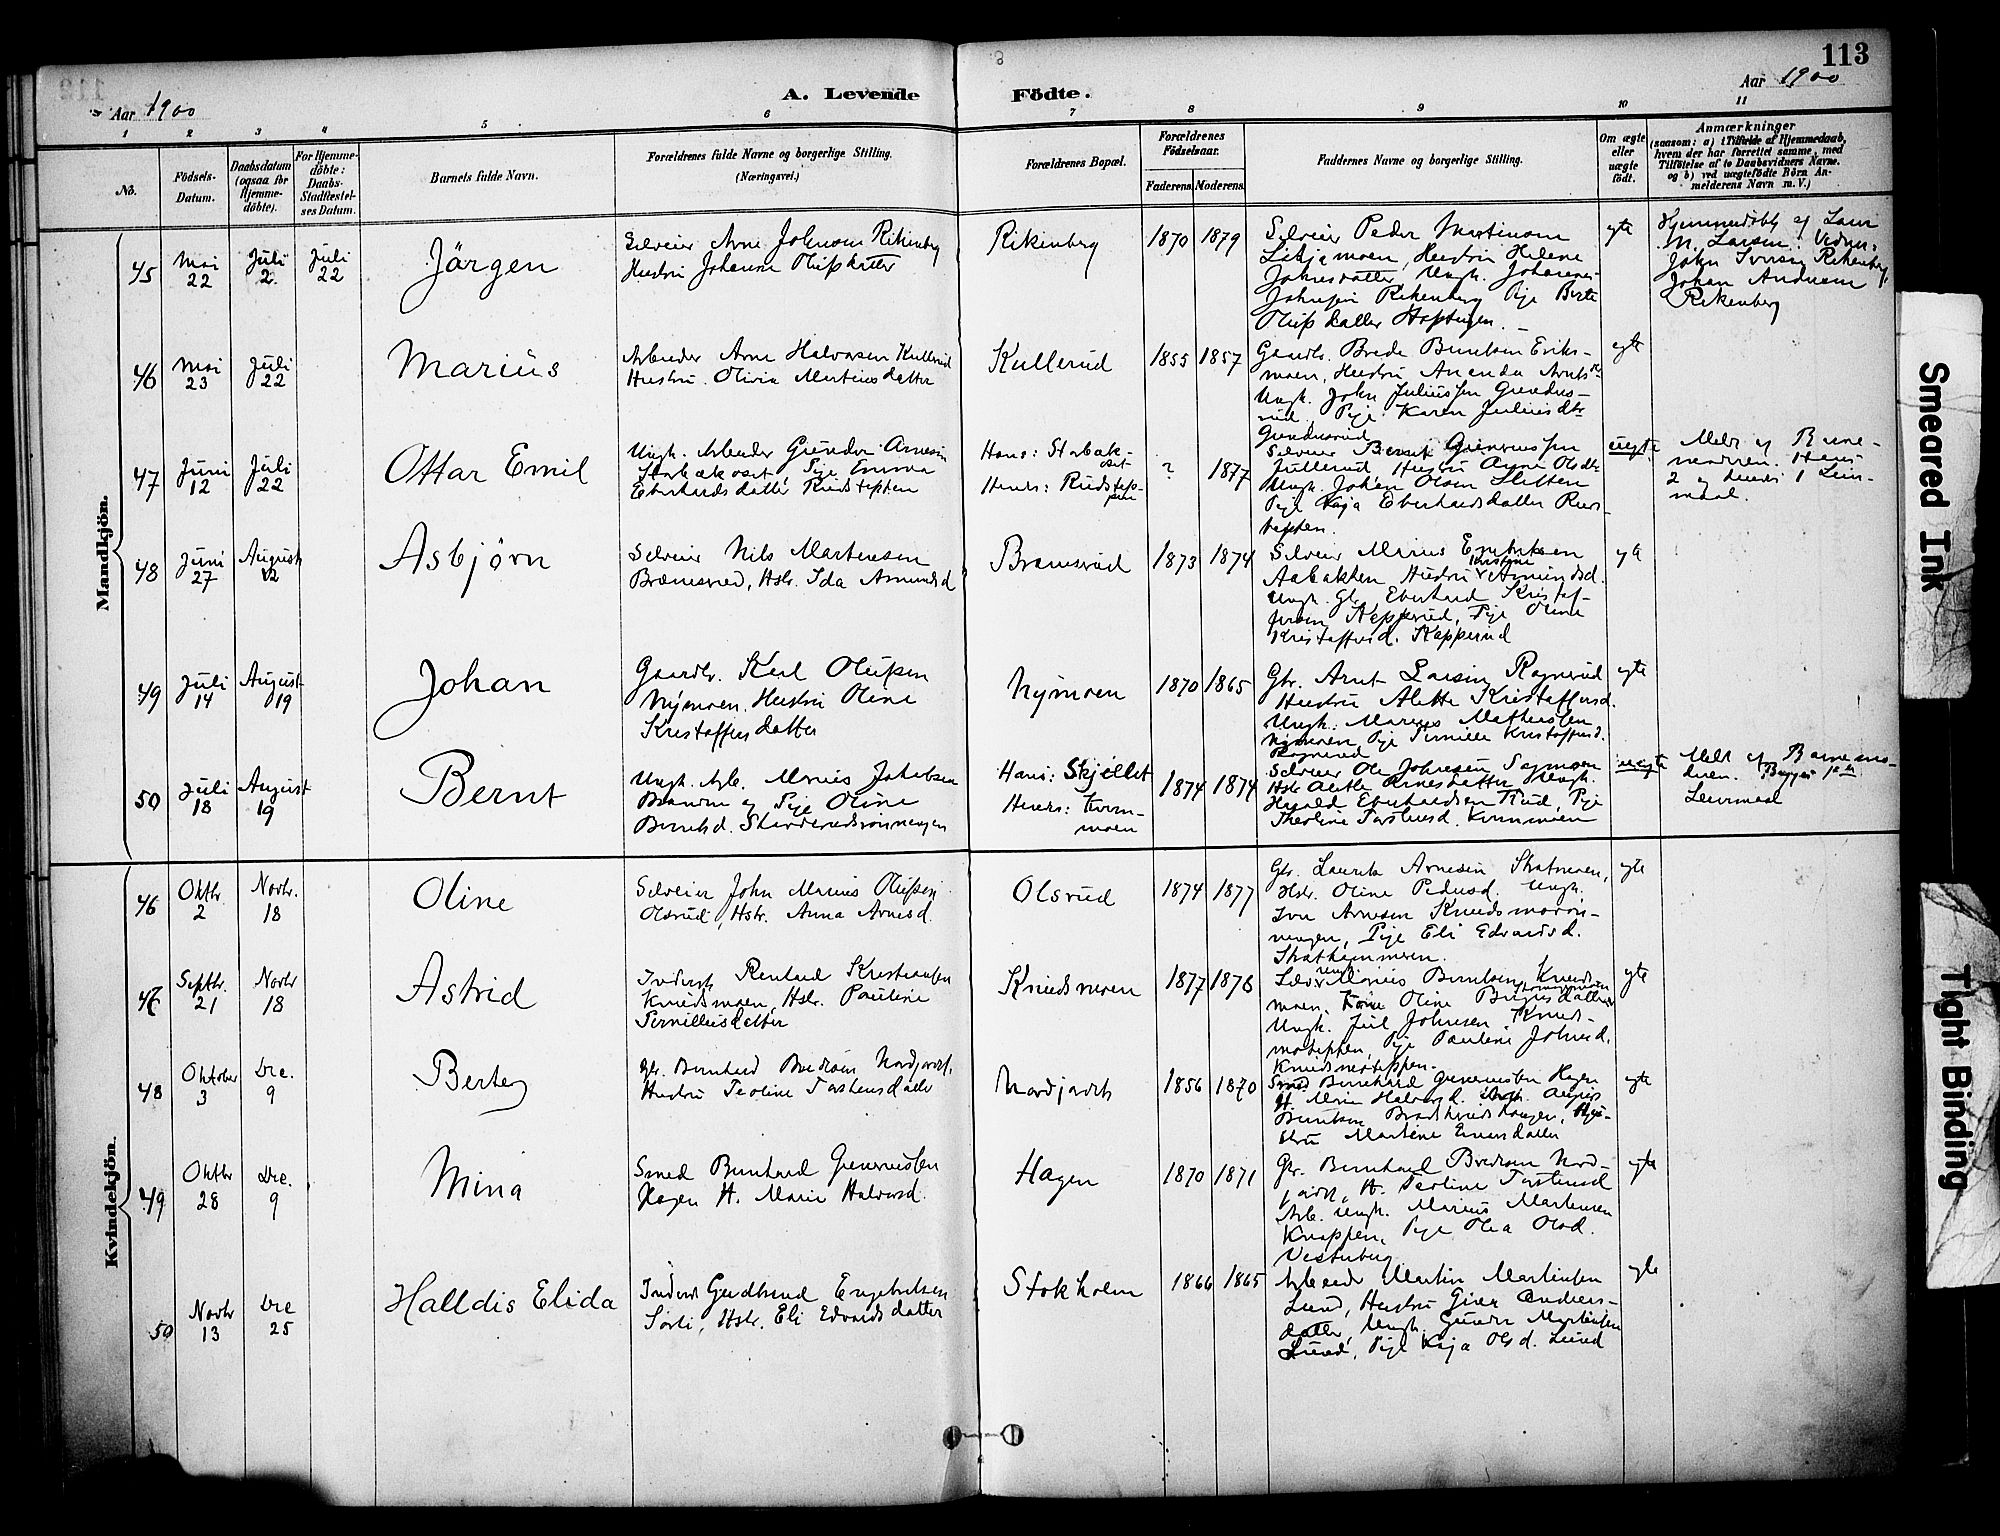 113
Aar 1900
A. Levende Födte.
Aar 1900
1 2 3 4 5 6 7 8 9 10 11
No.
Födsels-Datum.
Daabsdatum (ogsaa for Hjemmedöbte).
For Hjemmedöbte: Daabs-Stadfestelses Datum.
Barnets fulde Navn.
Forældrenes fulde Navne og borgerlige Stilling. (Næringsvei.)
Forældrenes Bopæl.
Forældrenes Födselsaar.
Faderens. Moderens.
Faddernes Navne og borgerlige Stilling.
Om ægte eller uægte födt.
Anmærkninger
(saasom: a) i Tilfælde af Hjemmedaab, hvem der har forrettet samme, med Tilföielse af to Daabsvidners Navne. og b) ved uægtefödte Börn Anmelderens Navn m. V.)
Mandkjön.
45 Mai 22 Juli 2. Juli 22 Jörgen
Selveier Arne Johnsen Rikenberg
Hustru Johanne Olufsdatter
Rikenberg 1870 1879
Selveier Peder Martinsen
Hustru Helene
Johannes-
Rikenberg Pige Berte
Olufsdatter
ygte
Hjemmedöbt af
M. Larsen.
John Iversen Rikenberg
Johan Andersen
Rikenberg
46 Mai 23 Juli 22 Marius
Arbeider Arne Halvorsen Kullerud
Hustru. Olivia Martinusdatter
Kullerud 1855 1857
Gaardbr. Brede Berntsen Eriks-
moen, Hustru
Ungk. John Juliussen Grundus-
rud, Pige Karen Juliusdtr
Grundusrud
ygte
47 Juni 12 Juli 22 Ottar Emil
Ungk. Arbeider Gunder Arnesen
Storbækoset, Pige Emma
Eberhardsdatter Rudsteppen
Hans: Storbæk-
oset
Hendes: Rudstep-
pen
? 1877
Selveier Bernt Gunerussen
Hustru Olsdtr
Ungk. Johan Olsen Sletten
Pige Kaja Eberhardsdatter Ruds-
teppen.
uegte
Meldt af Barne-
moderen. Hans
2 og hendes 1 Leier-
maal.
48 Juni 27 August 12 Asbjørn
Selveier Nils Martinsen
Brænesrud, Hstr. Ida Amundsd
Brænesrud 1873 1874
Selveier Marius Engebretsen
Aabakken Hustru Kristine Amundsd.
Ungk. Gbr. Eberhard Kristof-
fersen Kopperud, Pige Oline
Kristoffersd. Kopperud
ygte
49 Juli 14 August 19 Johan
Gaardbr. Karl Olufsen
Nymoen. Hustru Oline
Kristoffersdatter
Nymoen 1870 1865
Gbr. Arnt Larsen Rognerud
Hustru Alette Kristoffersd.
Ungk. Marius Mathiesen
Nymoen Pige Pernille Kristoffersd.
Rognerud
ygte
50 Juli 18 August 19 Bernt
Ungk. Arb. Marius Jakobsen
og Pige Oline
Berntsd.
Hans: Skjellet
Hendes: Kvern-
moen
1874 1874
Selveier Ole Johnesen Sagmoen
Ungk.
Harald Eberhardsen Rud, Pige
Theoline Torstensd. Kvernmoen
uegte
Meldt af Barnemo-
deren. Begges 1ste
Leiermaal
Kvindekjön.
46 Oktbr. 2 Novbr. 18 Oline
Selveier John Marius Olufsen
Olsrud, Hstr. Anna Arnesd.
Olsrud 1874 1877
Gbr. Laurits Arnesen
Hstr. Oline Pedersd. Ungk.
Iver Arnesen Knudsmoron-
ningen, Pige Eli Edvardsd.
ygte
47 Septbr. 21 Novbr 18 Astrid
Inderst Renhard Kristiansen
Knudsmoen, Hstr. Pauline
Pernilliusdatter
Knudsmoen 1877 1878
Marius Berntsen, Knuds-
moen, Kone Oline
Ungk. Juel Johnesen, Knuds-
moteppen, Pige Pauline Johnesd.
Knudsmoteppen.
ygte
48 Oktober 3 Dec. 9 Berte
Gbr. Bernhard Bredesen Nordjordet,
Hustru Teoline Torstensdatter
Nordjordet 1856 1870
Smed Bernhard Generiussen Hagen
H. Marie Halvorsd. Ungk. August
Berntsen
Martine Einersdatter
ygte
49 Oktbr 28 Dec. 9 Mina
Smed Bernhard Generiussen
Hagen H. Marie Halvorsd.
Hagen 1870 1871
Gbr. Bernhard Bredesen Nord-
jordet, H. Teoline Torstensd
Arb. Ungk. Marius Martinsen
Knappen, Pige Olea Olsd.
Vesterberg
ygte
50 Novbr 13 Dec 25 Halldis Elida
Inderst Gudbrand Engebretsen
Sørli, Hstr. Eli Edvardsdatter
Stokholm 1866 1865
Arbeider Martin Martinsen
Lund, Hustru Anders-
datter, Ungk. Gunder Martinsen
Lund, Pige Kaja Olsd. Lund
ygte
Smeared Ink
Tight Binding